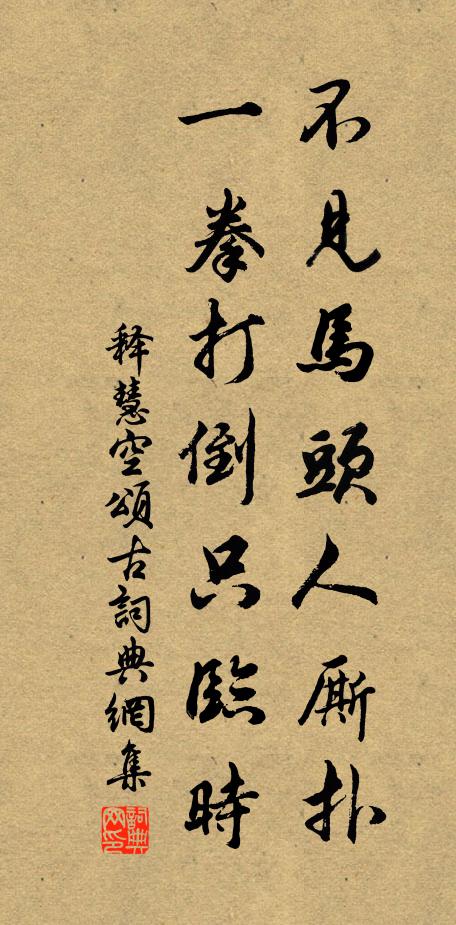 不見馬頭人厮扑
一拳打倒只臨時
释慧空頌古詞典網集
詞典网印